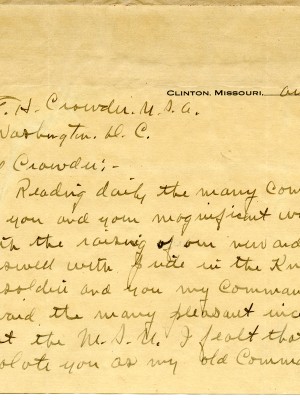 CLINTON, MISSOURI,
H. Crowder. U.S.A.
Washington. D.C.
Crowder:-
Reading daily the many Com
you and your magnificent w
th the raising of our new ar
swell with pride in the Kn
soldier and you my Comman
the many pleasant inc
at the M.S.U. I fealt that
you as my old Comma